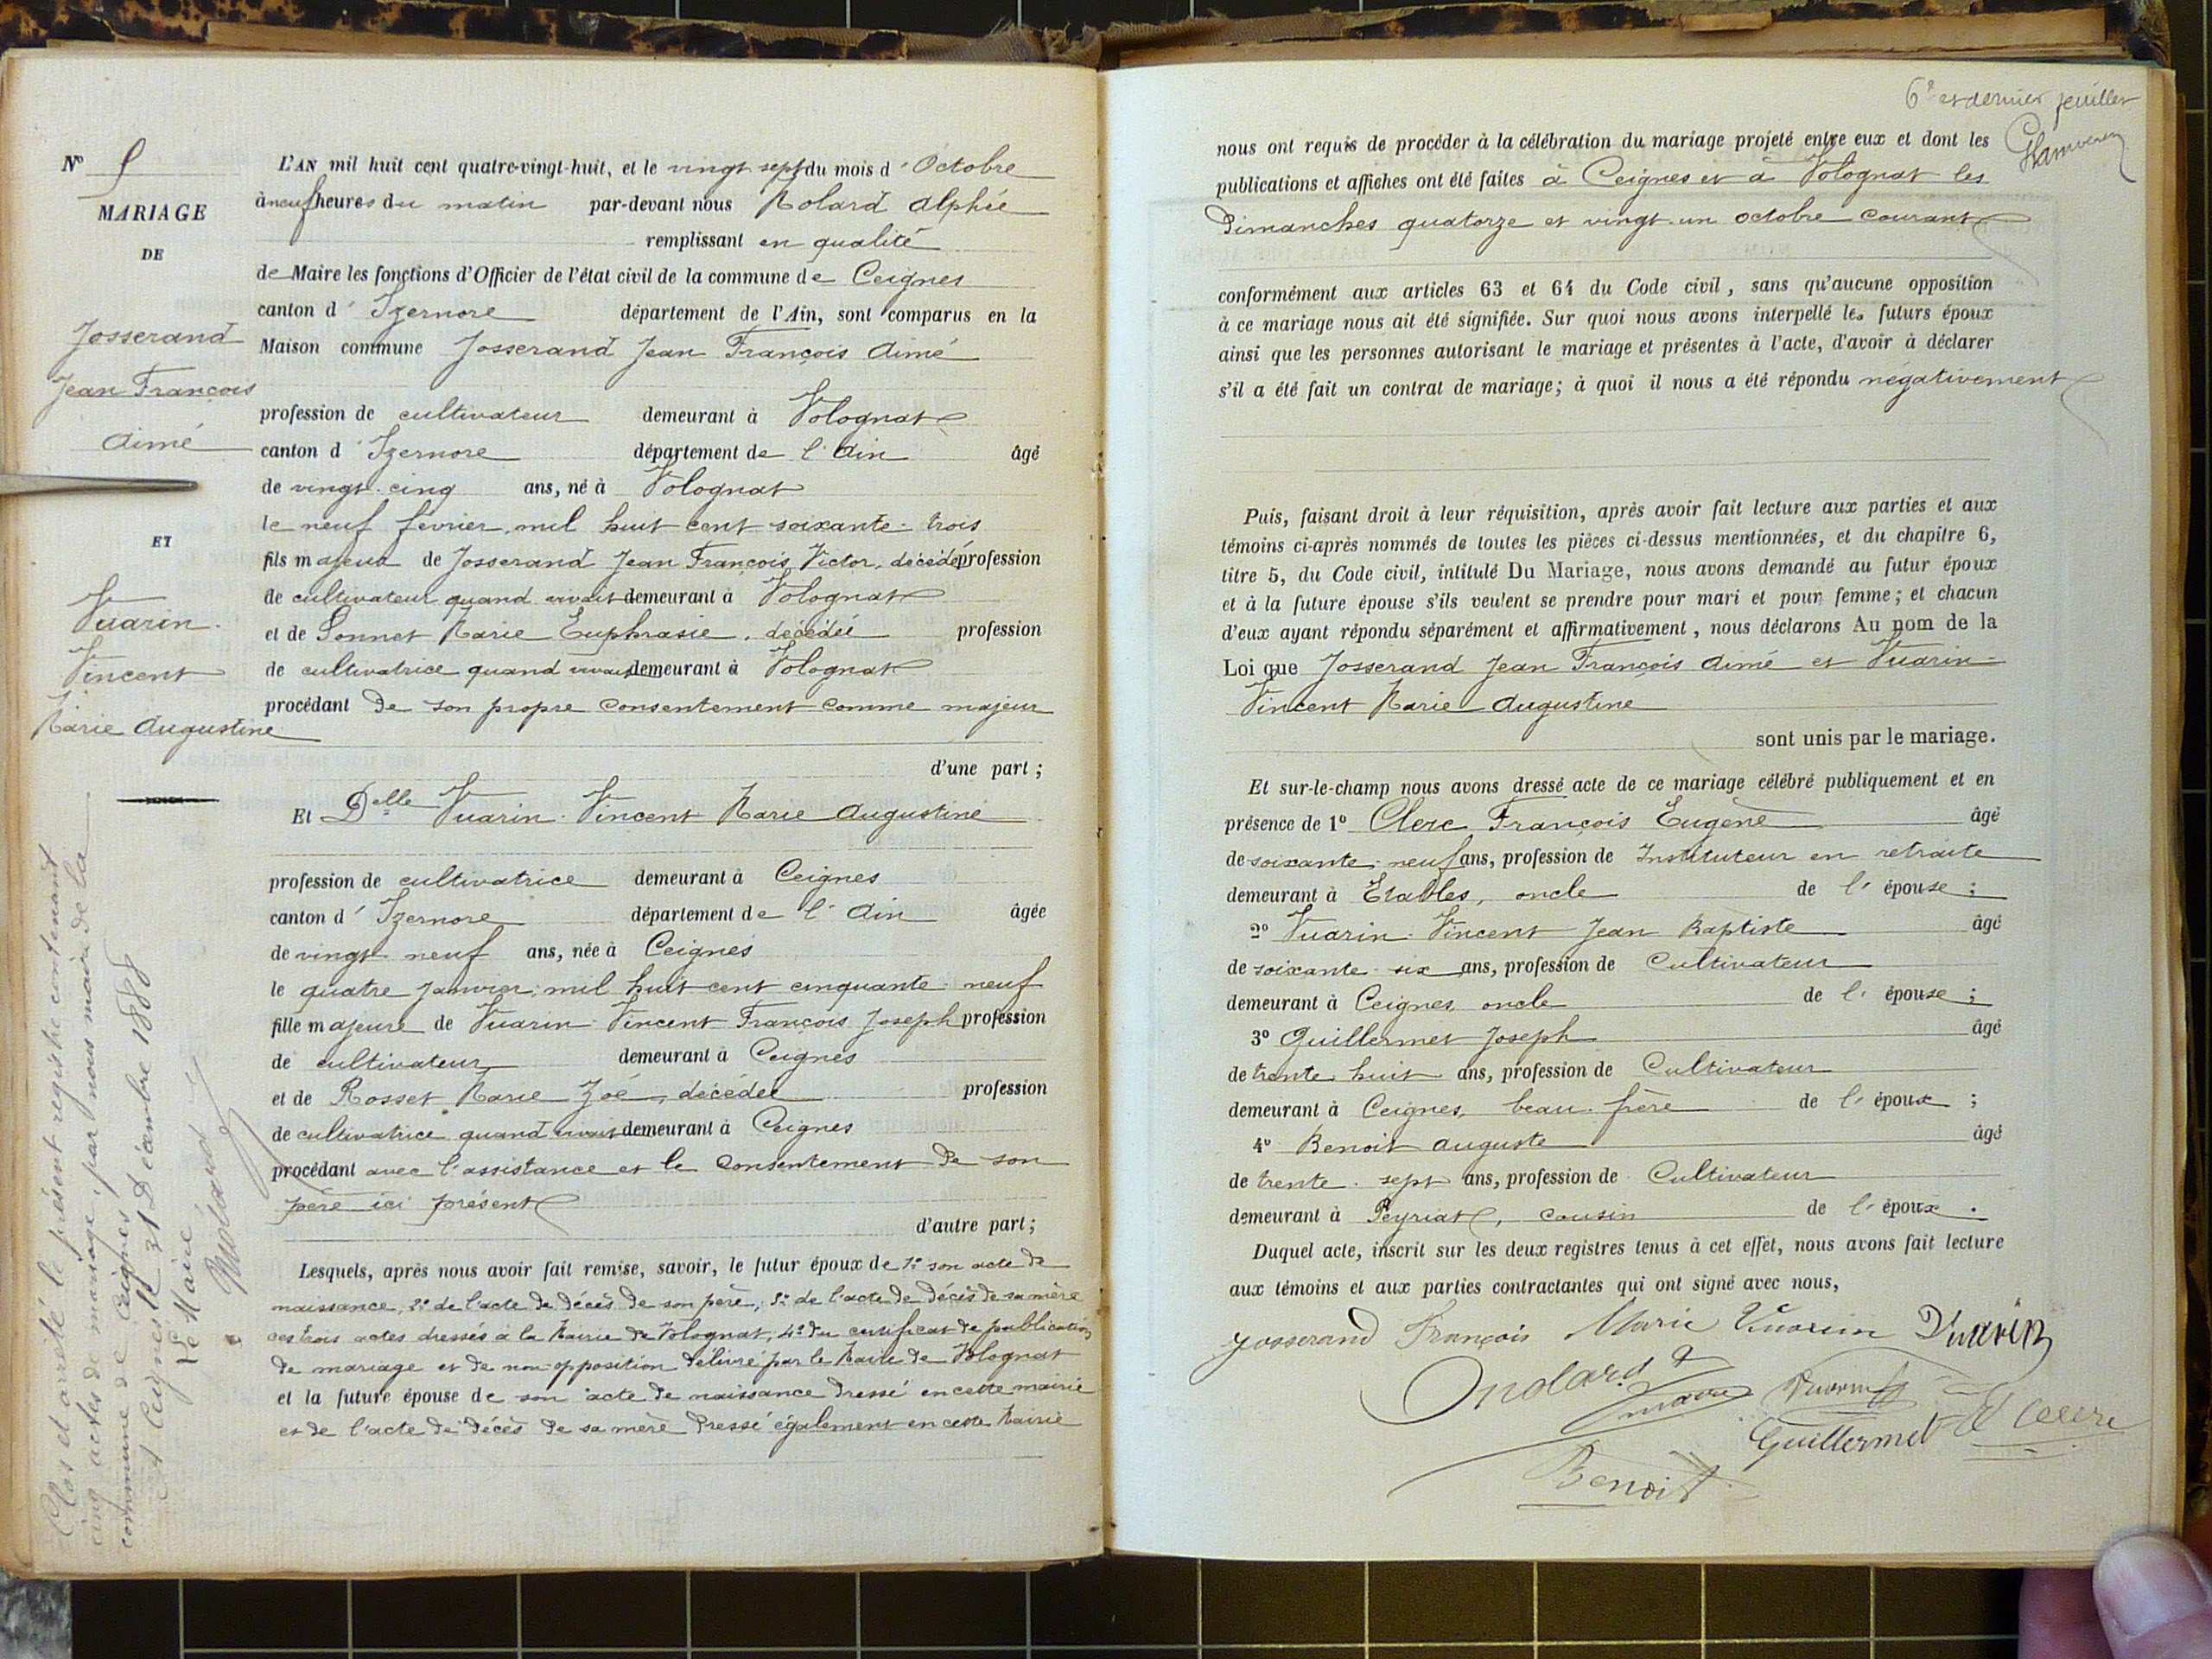 N° 5
MARIAGE
DE
Josserand
Jean François
Aimé
ET
Vuarin-
Vincent
Marie Augustine
Clos et arrêté le présent registre contenant
cinq actes de mariage, par nous maire de la
commune de Ceignes,
A Ceignes le 31 Décembre 1888
Le Maire
L'AN mil huit cent quatre-vingt-huit, et le vingt sept du mois d'Octobre
à neuf heures du matin par-devant nous Molard Alphée
remplissant en qualité
de Maire les fonctions d'Officier de l'état civil de la commune de Ceignes
canton d'Izernore département de l'Ain, sont comparus en la
Maison commune Josserand Jean François Aimé
profession de cultivateur demeurant à Volognat
canton d'Izernore département de l'Ain âgé
de vingt-cinq ans, né à Volognat
le neuf février mil huit cent soixante-trois
fils majeur de Josserand Jean François Victor, décédé, profession
de cultivateur quand vivait demeurant à Volognat
et de Sonnet Marie Euphrasie, décédée profession
de cultivatrice quand vivait demeurant à Volognat
procédant de son propre consentement comme majeur
d'une part;
Et Delle Vuarin-Vincent Marie Augustine
profession de cultivatrice demeurant à Ceignes
canton d'Izernore département de l'Ain âgée
de vingt neuf ans, née à Ceignes
le quatre Janvier mil huit cent cinquante-neuf
fille majeure de Vuarin-Vincent François Joseph profession
de cultivateur demeurant à Ceignes
et de Rosset Marie Zoé, décédée profession
de cultivatrice quand vivait demeurant à Ceignes
procédant avec l'assistance et le consentement de son
père ici présent
d'autre part;
Lesquels, après nous avoir fait remise, savoir, le futur époux de 1° son acte de
naissance, 2° de l'acte de décès de son père, 3° de l'acte de décès de sa mère
ces trois actes dressés à la Mairie de Volognat, 4° du certificat de publication
de mariage et de non-opposition délivré par le Maire de Volognat
et la future épouse de son acte de naissance dressé en cette mairie
et de l'acte de décès de sa mère dressé également en cette Mairie
6e et dernier feuillet
nous ont requis de procéder à la célébration du mariage projeté entre eux et dont les
publications et affiches ont été faites à Ceignes et à Volognat les
Dimanches quatorze et vingt-un octobre courant
conformément aux articles 63 et 64 du Code civil, sans qu'aucune opposition
à ce mariage nous ait été signifiée. Sur quoi nous avons interpellé les futurs époux
ainsi que les personnes autorisant le mariage et présentes à l'acte, d'avoir à déclarer
s'il a été fait un contrat de mariage; à quoi il nous a été répondu négativement
Puis, faisant droit à leur réquisition, après avoir fait lecture aux parties et aux
témoins ci-après nommés de toutes les pièces ci-dessus mentionnées, et du chapitre 6,
titre 5, du Code civil, intitulé Du Mariage, nous avons demandé au futur époux
et à la future épouse s'ils veulent se prendre pour mari et pour femme; et chacun
d'eux ayant répondu séparément et affirmativement, nous déclarons Au nom de la
Loi que Josserand Jean François Aimé et Vuarin-
Vincent Marie Augustine
sont unis par le mariage.
Et sur-le-champ nous avons dressé acte de ce mariage célébré publiquement et en
présence de 1° Clerc François Eugène âgé
de soixante-neuf ans, profession de Instituteur en retraite
demeurant à Etables, oncle de l'épouse;
2° Vuarin-Vincent Jean Baptiste âgé
de soixante-six ans, profession de Cultivateur
demeurant à Ceignes oncle de l'épouse;
3° Guillermet Joseph âgé
de trente huit ans, profession de Cultivateur
demeurant à Ceignes, beau-frère de l'époux;
4° Benoit Auguste âgé
de trente-sept ans, profession de Cultivateur
demeurant à Peyriat, cousin de l'époux.
Duquel acte, inscrit sur les deux registres tenus à cet effet, nous avons fait lecture
aux témoins et aux parties contractantes qui ont signé avec nous,
Josserand François Marie Vuarin Vuarin
Molard
maire
Guillermet E Clerc
Benoit